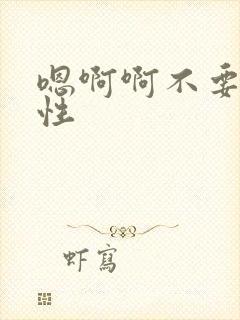 嗯啊啊不要
性
虾写